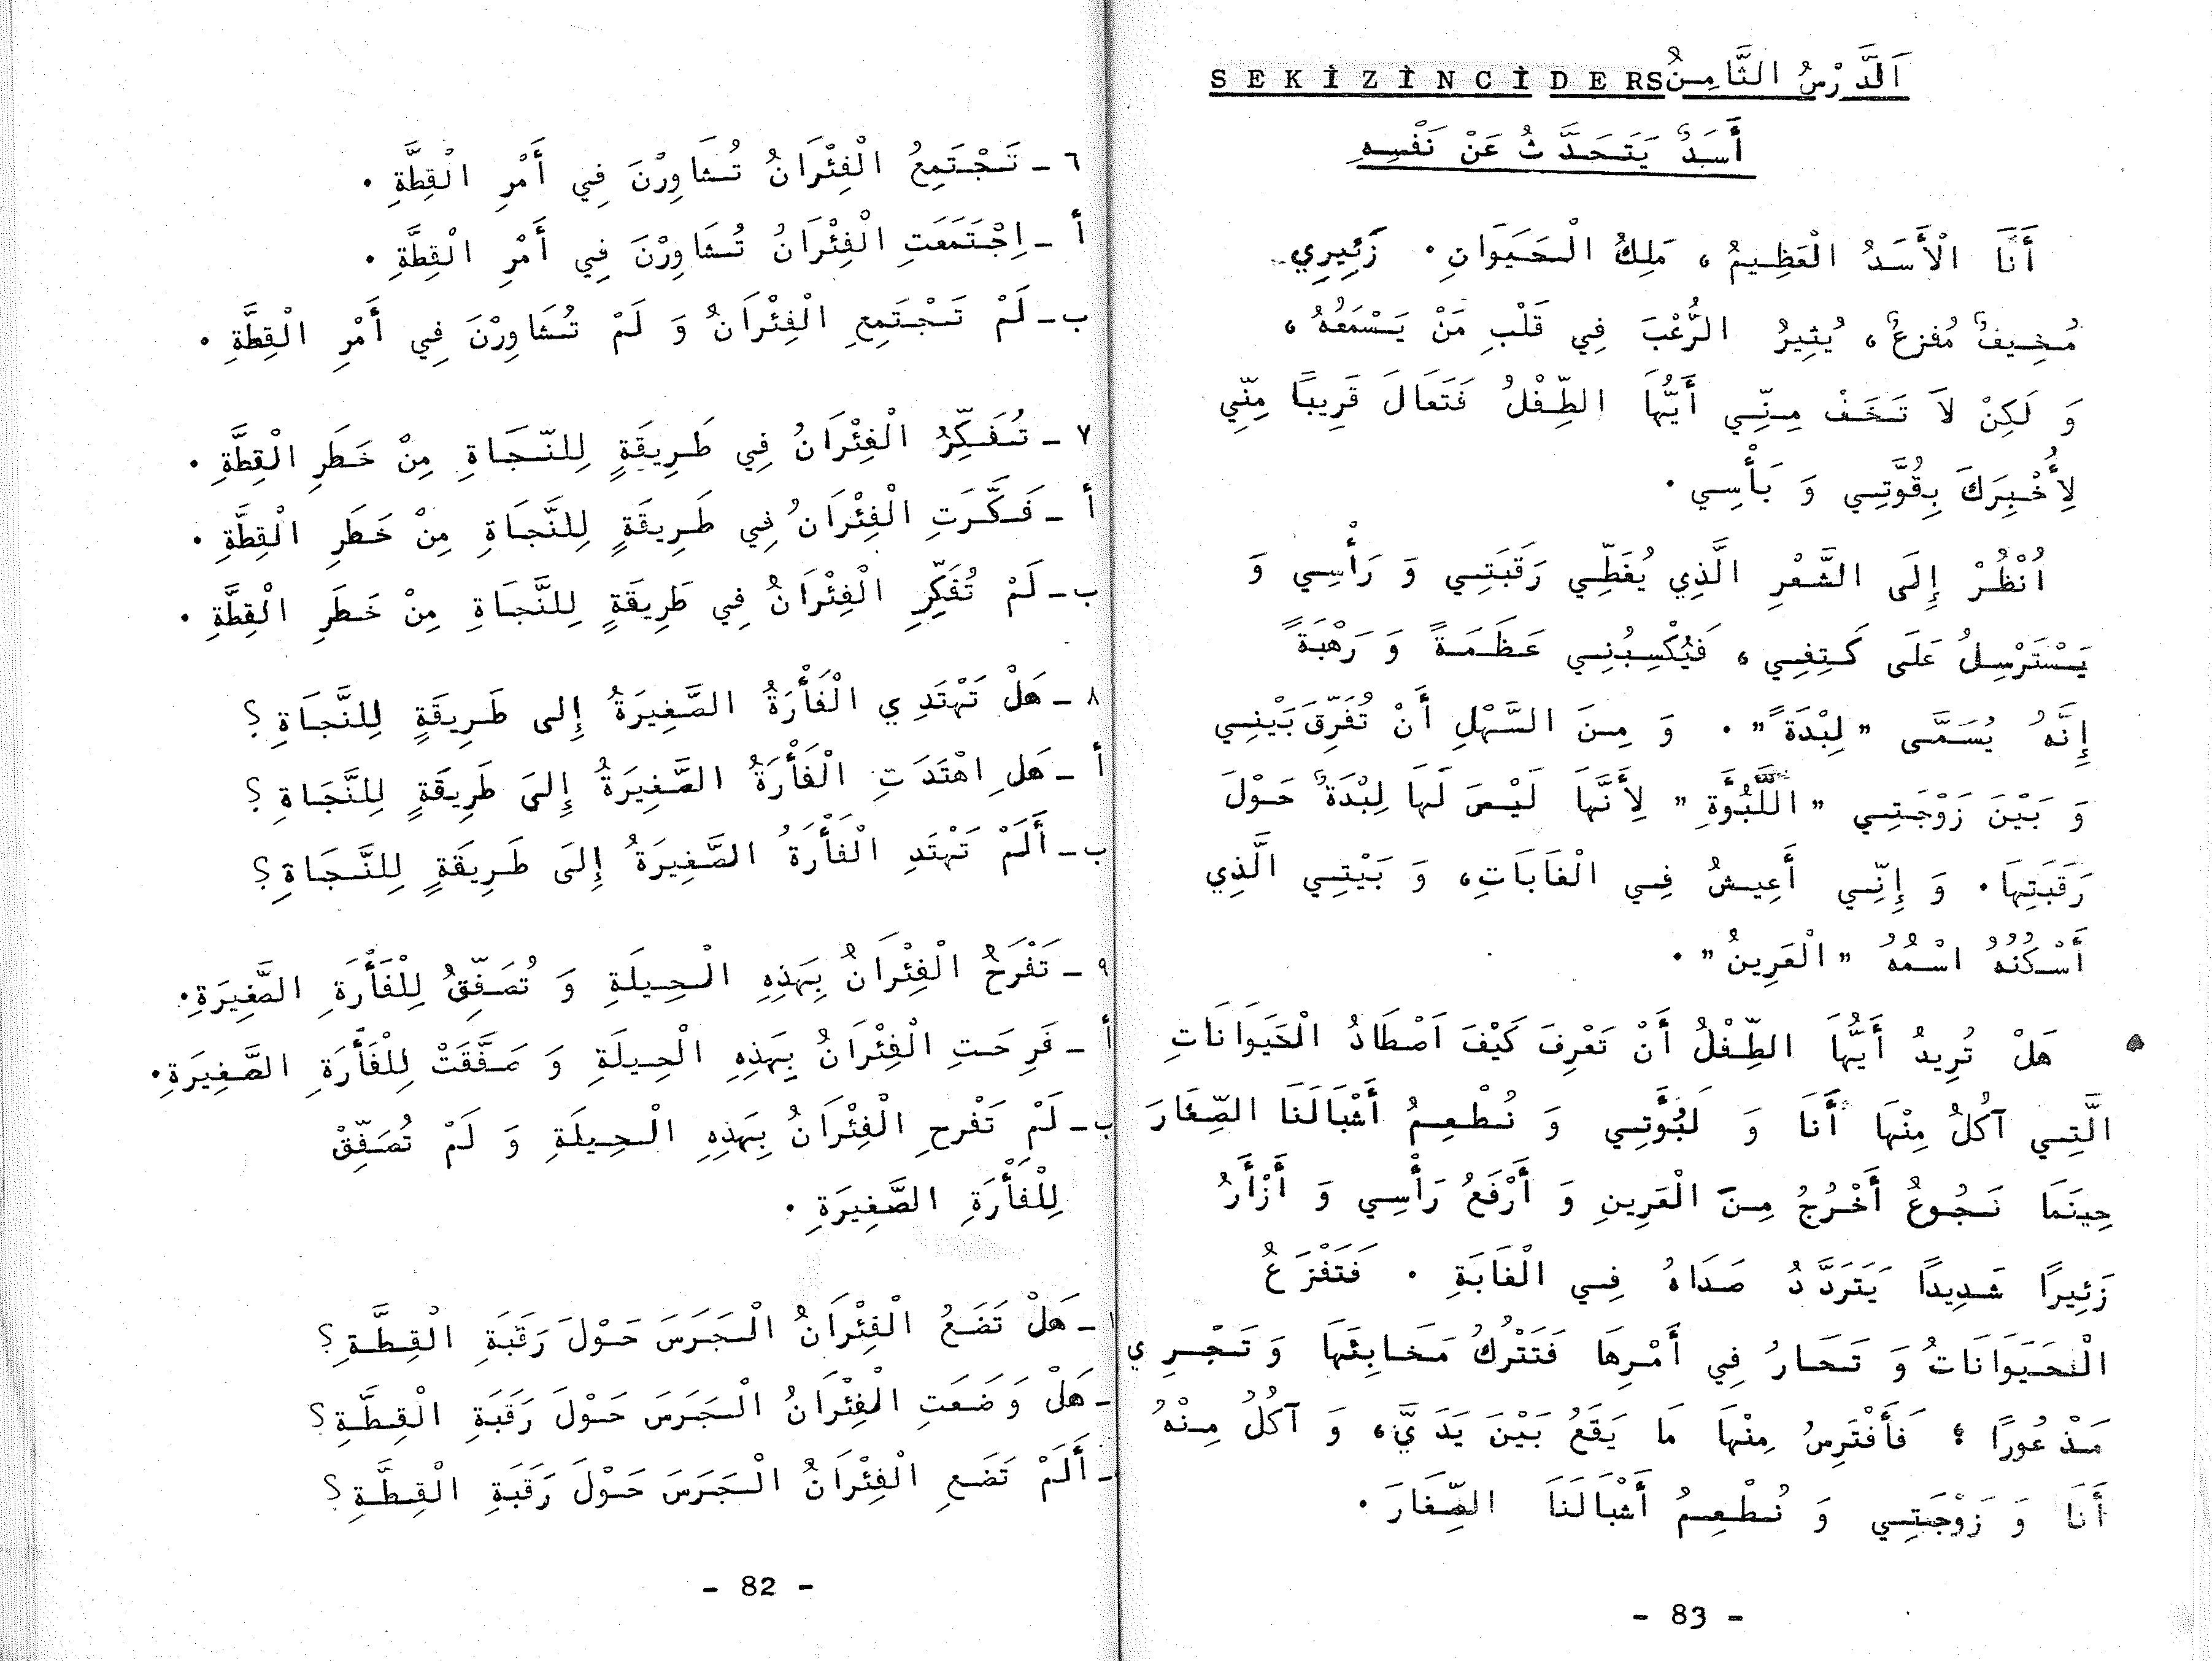 ٦ ـ تَجْتَمِعُ الْفِئْرَانُ تُشَاوِرْنَ فِي أَمْرِ الْقِطَّةِ .
أ ـ اِجْتَمَعَتِ الْفِئْرَانُ تُشَاوِرْنَ فِي أَمْرِ الْقِطَّةِ .
ب ـ لَمْ تَجْتَمِعِ الْفِئْرَانُ وَ لَمْ تُشَاوِرْنَ فِي أَمْرِ الْقِطَّةِ .
٧ ـ تُفَكِّرُ الْفِئْرَانُ فِي طَرِيقَةٍ لِلنَّجَاةِ مِنْ خَطَرِ الْقِطَّةِ .
أ ـ فَكَّرَتِ الْفِئْرَانُ فِي طَرِيقَةٍ لِلنَّجَاةِ مِنْ خَطَرِ الْقِطَّةِ .
ب ـ لَمْ تُفَكِّرِ الْفِئْرَانُ فِي طَرِيقَةٍ لِلنَّجَاةِ مِنْ خَطَرِ الْقِطَّةِ .
٨ ـ هَلْ تَهْتَدِي الْفَأْرَةُ الصَّغِيرَةُ إِلى طَرِيقَةٍ لِلنَّجَاةِ ؟
أ ـ هَلِ اهْتَدَتِ الْفَأْرَةُ الصَّغِيرَةُ إِلىَ طَرِيقَةٍ لِلنَّجَاةِ ؟
ب ـ أَلَمْ تَهْتَدِ الْفَأْرَةُ الصَّغِيرَةُ إِلىَ طَرِيقَةٍ لِلنَّجَاةِ ؟
٩ ـ تَفْرَحُ الْفِئْرَانُ بِهَذِهِ الْحِيلَةِ وَ تُصَفِّقُ لِلْفَأْرَةِ الصَّغِيرَةِ .
أ ـ فَرِحَتِ الْفِئْرَانُ بِهَذِهِ الْحِيلَةِ وَ صَفَّقَتْ لِلْفَأْرَةِ الصَّغِيرَةِ .
ب ـ لَمْ تَفْرحِ الْفِئْرَانُ بِهَذِهِ الْحِيلَةِ وَ لَمْ تُصَفِّقْ
لِلْفَأْرَةِ الصَّغِيرَةِ .
ـ هَلْ تَضَعُ الْفِئْرَانُ الْجَرَسَ حَوْلَ رَقَبَةِ الْقِطَّةِ ؟
ـ هَلْ وَضَعَتِ الْفِئْرَانُ الْجَرَسَ حَوْلَ رَقَبَةِ الْقِطَّةِ ؟
ـ أَلَمْ تَضَعِ الْفِئْرَانُ الْجَرَسَ حَوْلَ رَقَبَةِ الْقِطَّةِ ؟
- 82 -
S E K İ Z İ N C İ D E R S اَلدَّرْسُ الثَّامِنُ
أَسَدٌ يَتَحَدَّثُ عَنْ نَفْسِهِ
أَنَا الْأَسَدُ الْعَظِيمُ ، مَلِكُ الْحَيَوَانِ . زَئِيرِي
مُخِيفٌ مُفْزِعٌ ، يُثِيرُ الرُّعْبَ فِي قَلْبِ مَنْ يَسْمَعُهُ ،
وَ لَكِنْ لاَ تَخَفْ مِنِّي أَيُّهَا الطِّفْلُ فَتَعَالَ قَرِيبًا مِنِّي
لِأُخْبِرَكَ بِقُوَّتِي وَ بَأْسِي .
اُنْظُرْ إِلَى الشَّعْرِ الَّذِي يُغَطِّي رَقَبَتِي وَ رَأْسِي وَ
يَسْتَرْسِلُ عَلَى كَتِفِي ، فَيُكْسِبُنِي عَظَمَةً وَ رَهْبَةً
إِنَّهُ يُسَمَّى " لِبْدَةً " . وَ مِنَ السَّهْلِ أَنْ تُفَرِّقَ بَيْنِي
وَ بَيْنَ زَوْجَتِي " اللَّبُؤَةِ " لِأَنَّهَا لَيْسَ لَهَا لِبْدَةٌ حَوْلَ
رَقَبَتِهَا . وَ إِنِّي أَعِيشُ فِي الْغَابَاتِ ، وَ بَيْتِي الَّذِي
أَسْكُنُهُ اسْمُهُ " الْعَرِينُ " .
هَلْ تُرِيدُ أَيُّهَا الطِّفْلُ أَنْ تَعْرِفَ كَيْفَ اَصْطَادُ الْحَيَوَانَاتِ
الَّتِي آكُلُ مِنْهَا أَنَا وَ لَبُؤَتِي وَ نُطْعِمُ أَشْبَالَنَا الصِّغَارَ
حِينَمَا نَجُوعُ أَخْرُجُ مِنَ الْعَرِينِ وَ أَرْفَعُ رَأْسِي وَ أَزْأَرُ
زَئِيرًا شَدِيدًا يَتَرَدَّدُ صَدَاهُ فِي الْغَابَةِ . فَتَفْزَعُ
الْحَيَوَانَاتُ وَ تَحَارُ فِي أَمْرِهَا فَتَتْرُكُ مَخَابِئَهَا وَ تَجْرِي
مَذْعُورًا ؛ فَأَفْتَرِسُ مِنْهَا مَا يَقَعُ بَيْنَ يَدَيَّ ، وَ آكُلُ مِنْهُ
أَنَا وَ زَوْجَتِي وَ نُطْعِمُ أَشْبَالَنَا الصِّغَارَ .
- 83 -